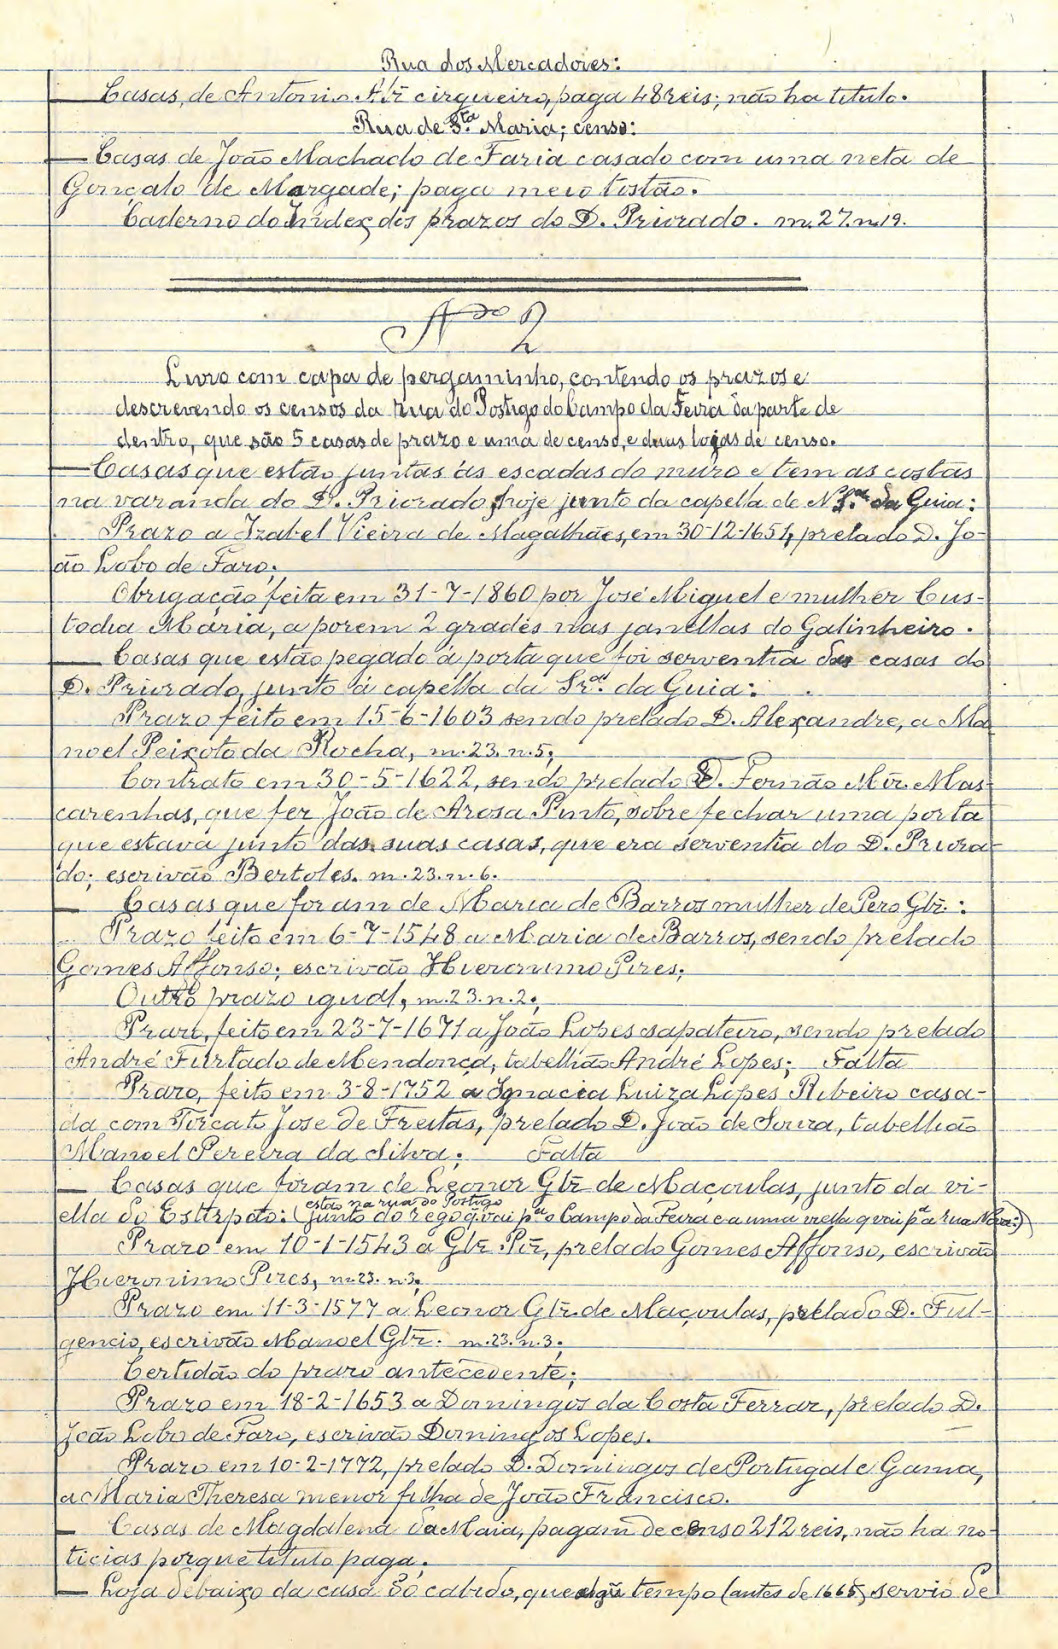 Rua dos Mercadores:
— Casas, de Antonio Alz̃ cirgueiro, paga 48 reis; não ha titulo.
Rua de S.ta Maria; censo:
— Casas de João Machado de Faria casado com uma neta de
Gonçalo de Margade; paga meio tostão.
Caderno do Index dos prazos do D. Priorado. m. 27. n. 19.
Nº 2
Livro com capa de pergaminho, contendo os prazos e
descrevendo os censos da Rua do Postigo do Campo da Feira da parte de
dentro, que são 5 casas de prazo e uma de censo, e duas lojas de censo.
— Casas que estão juntas ás escadas do muro e tem as costas
na varanda do D. Priorado, hoje junto da capella de N. Sr.ª da Guia:
Prazo a Izabel Vieira de Magalhães, em 30-12-1654, prelado D. Jo-
ão Lobo de Faro;
Obrigação feita em 31-7-1860 por José Miguel e mulher Cus-
todia Maria, a porem 2 grades nas janellas do Galinheiro.
— Casas que estão pegado á porta que foi serventia das casas do
D. Priorado, junto á capella da Sr.ª da Guia:
Prazo feito em 15-6-1603 sendo prelado D. Alexandre, a Ma
noel Peixoto da Rocha, m. 23. n. 5;
Contrato em 30-5-1622, sendo prelado D. Fernão Mĩz. Mas-
carenhas, que fez João de Arosa Pinto, sobre fechar uma porta
que estava junto das suas casas, que era serventia do D. Priora-
do; escrivão Bertoles. m. 23. n. 6.
— Casas que foram de Maria de Barros mulher de Pero Glz̃.:
Prazo feito em 6-7-1548 a Maria de Barros, sendo prelado
Gomes Affonso; escrivão Hieronimo Pires;
Outro prazo igual, m. 23. n. 2;
Prazo, feito em 23-7-1671 a João Lopes sapateiro, sendo prelado
André Furtado de Mendonça, tabellião André Lopes; Falta
Prazo, feito em 3-8-1752 a Ignacia Luiza Lopes Ribeiro casa-
da com Torcato Jose de Freitas, prelado D. João de Souza, tabellião
Manoel Pereira da Silva; Falta
— Casas que foram de Leonor Glz̃ de Maçoulas, junto da vi-
estão na rua do Postigo
ella do Esterpão: (junto do rego q̃ vai p.ª o Campo da Feira e a uma viella q vai p.ª a rua Nova:)
Prazo em 10-1-1543 a Glz̃ Piz̃, prelado Gomes Affonso, escrivão
Hieronimo Pires, m. 23. n. 3;
Prazo em 11-3-1577 a Leonor Glz̃ de Maçoulas, prelado D. Ful-
gencio, escrivão Manoel Glz̃. m. 23. n. 3;
Certidão do prazo antecedente;
Prazo em 18-2-1653 a Domingos da Costa Ferraz, prelado D.
João Lobo de Faro, escrivão Domingos Lopes.
Prazo em 10-2-1772, prelado D. Domingos de Portugal e Gama,
a Maria Theresa menor filha de João Francisco.
— Casas de Magdalena da Maia, pagam de censo 212 reis, não ha no-
ticias porque titulo paga.
— Loja debaixo da casa do cabido, que algũ tempo (antes de 1665) servio de